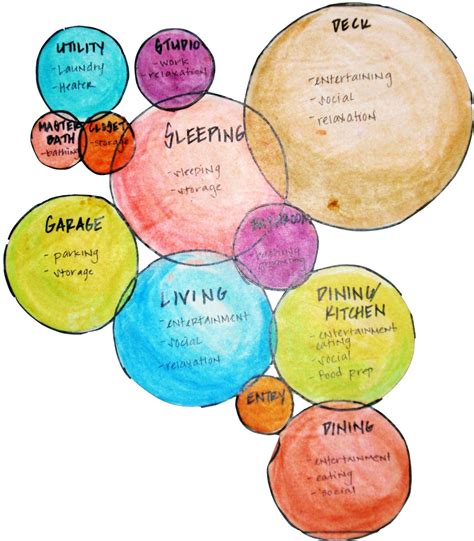 UTILITY
- Laundry
- Heater
STUDIO
- work
- relaxation
DECK
- entertaining
- social
- relaxation
MASTER
BATH
- bathing
CLOSET
- storage
SLEEPING
- sleeping
- storage
GARAGE
- parking
- storage
BATHROOM
- bathing
- grooming
LIVING
- entertainment
- social
- relaxation
DINING/
KITCHEN
- entertainment
eating
- social
- food prep
ENTRY
DINING
- entertainment
- eating
- social